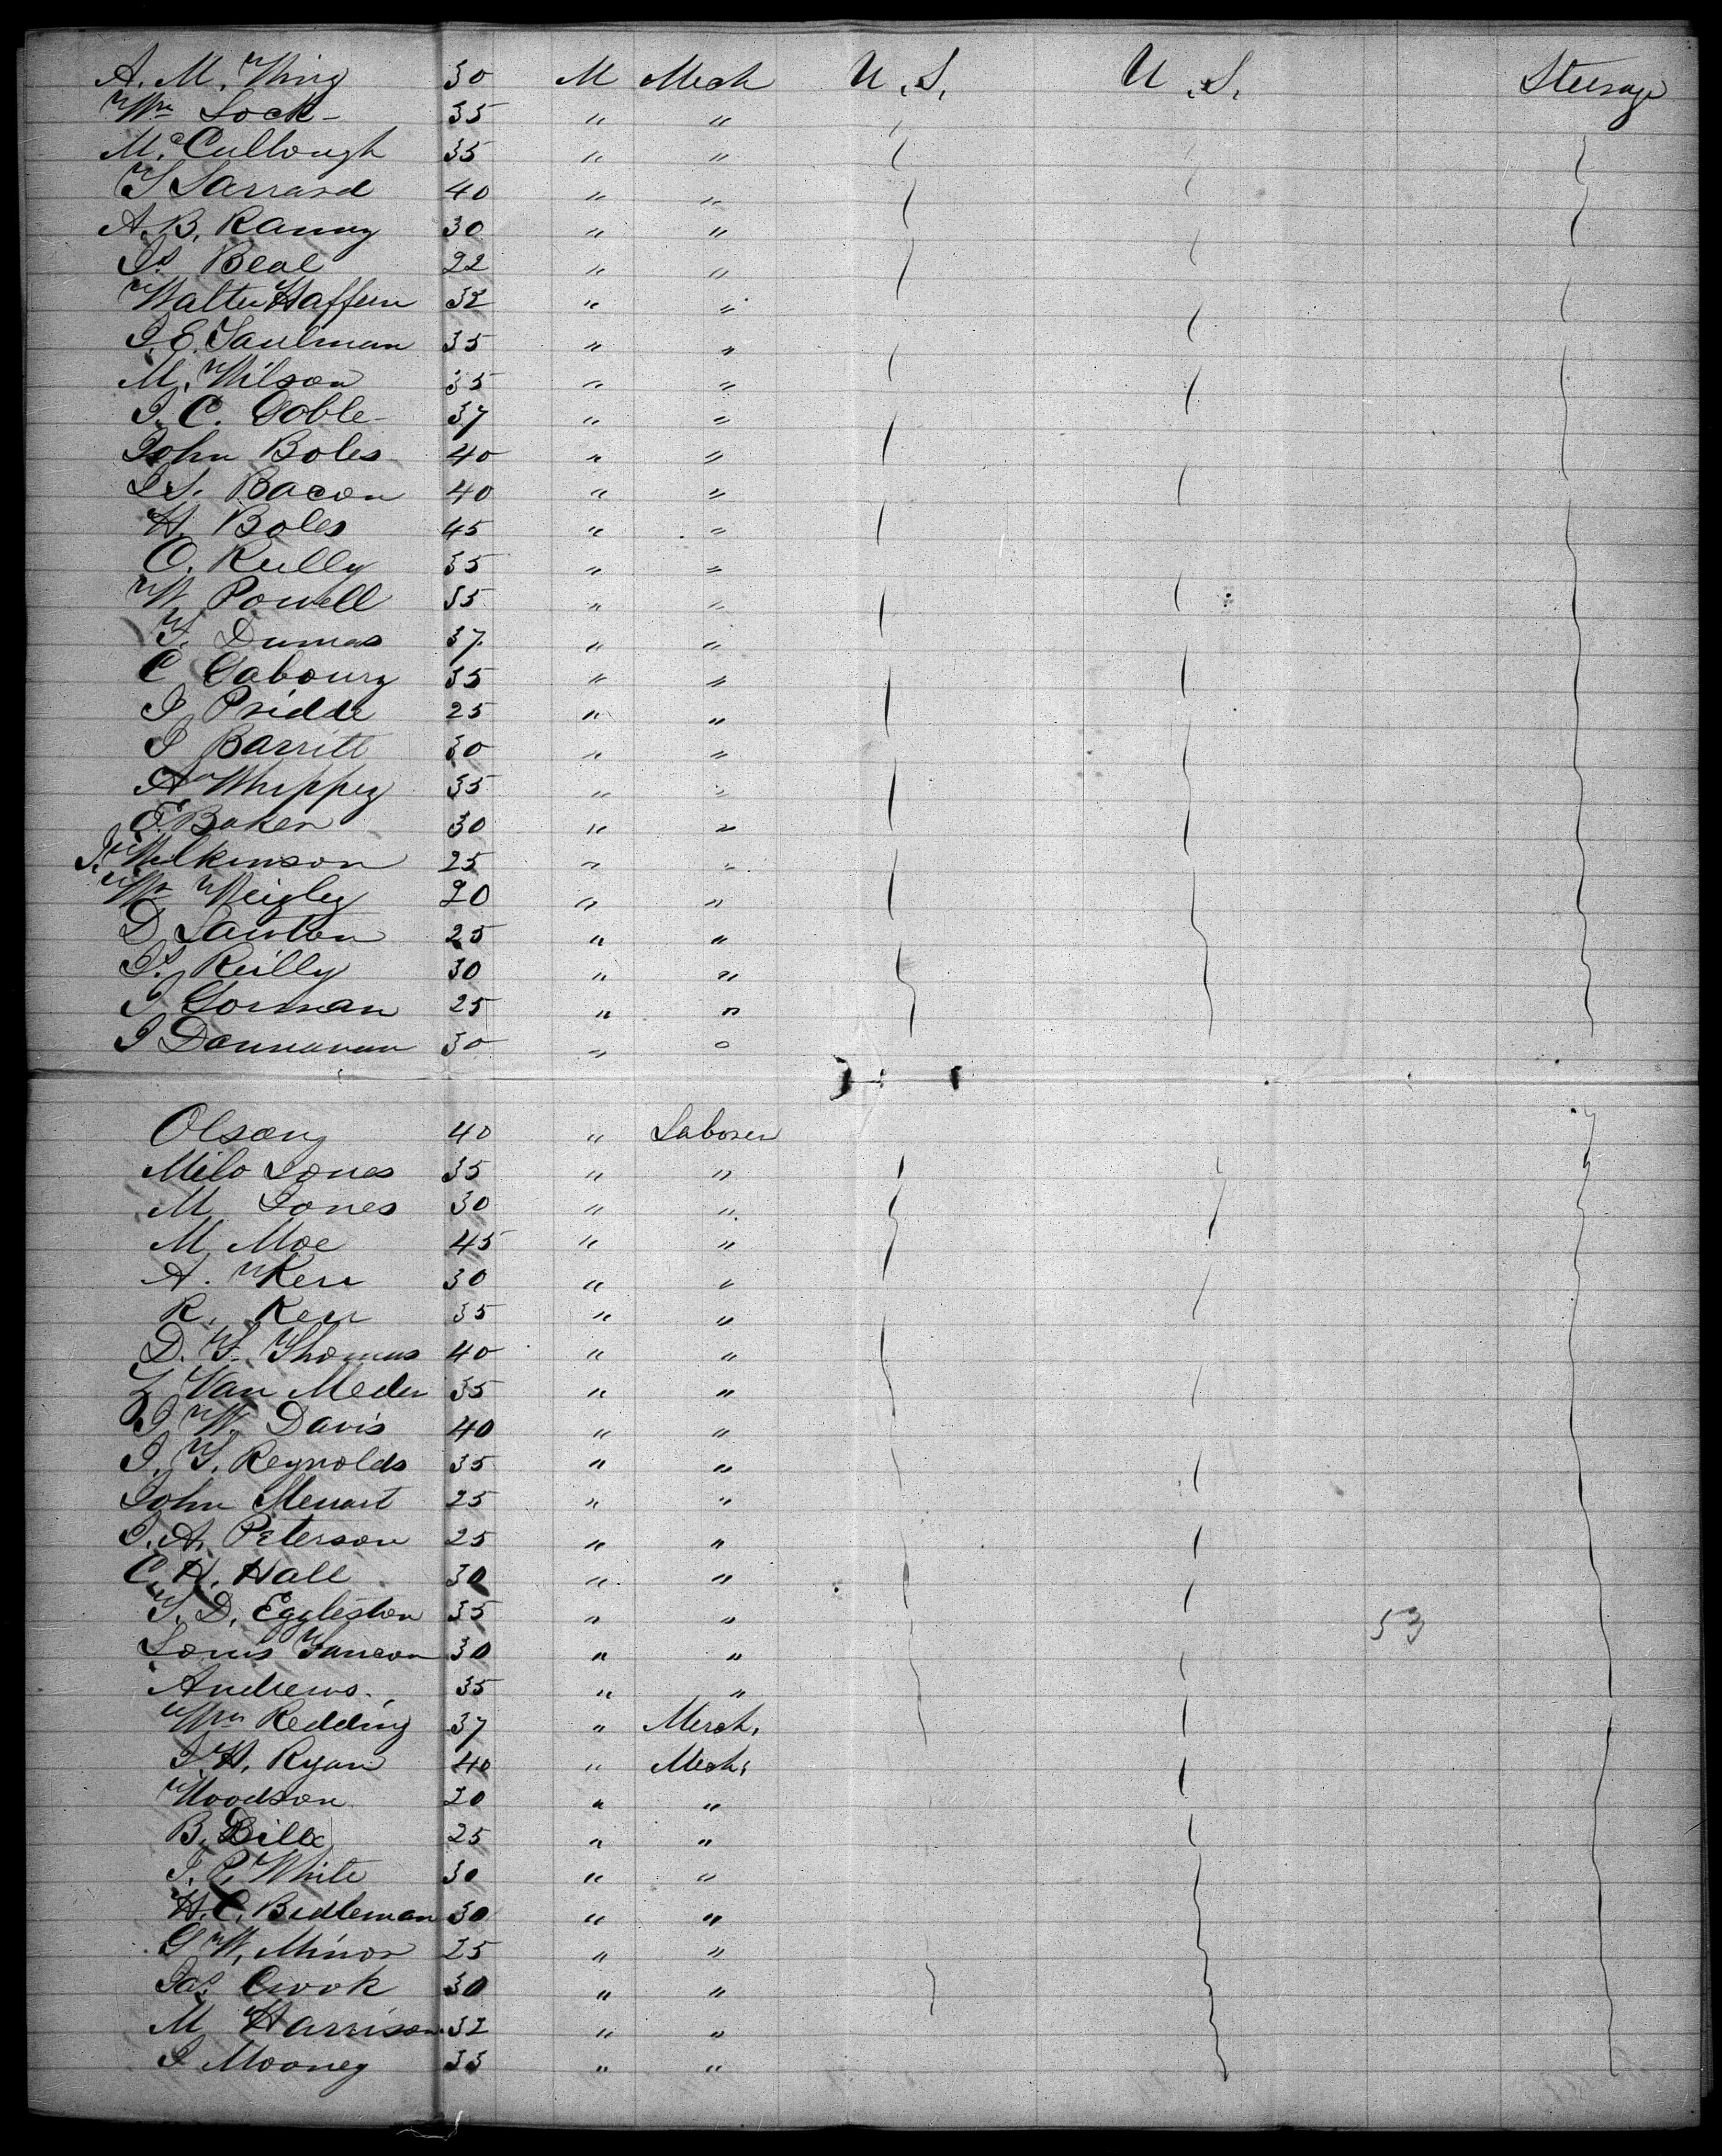 A. M. Wing 30 M Mech U.S. U.S. Steerage
Wm Lock 35 " "
McCullough 35 " "
T Sarrard 40 " "
A. B. Ranny 30 " "
Js Beal 22 " "
Walter Haffern 32 " "
J. E. Saulman 35 " "
M. Wilson 35 " "
J. C. Goble 37 " "
John Boles 40 " "
J S. Bacon 40 " "
H. Boles 45 " "
O. Reilly 35 " "
W Powell 35 " "
F. Dumas 37 " "
C Gaboury 35 " "
J Pridde 25 " "
J Barritt 30 " "
A Whippey 35 " "
E Baker 30 " "
J. Wilkinson 25 " "
Wm Neigley 20 " "
D Lawton 25 " "
Js. Reilly 30 " "
J Gorman 25 " "
J Dannavan 30 " "
Olsony 40 " Laborer
Milo Jones 35 " "
M Jones 30 " "
M Moe 45 " "
A. Kerr 30 " "
R. Kerr 35 " "
D. F. Thomas 40 " "
Z Van Meder 35 " "
J W. Davis 40 " "
J. T. Reynolds 35 " "
John Stewart 25 " "
J. A. Peterson 25 " "
C. H. Hall 30 " "
T. D. Eggleston 35 " " 53
Louis 30 " "
Andrews 35 " "
Wm Redding 37 " Merch.
J. H. Ryan 40 " Mech.
Woodson 20 " "
B. Dill 25 " "
J. P. White 30 " "
H. C. Bidleman 30 " "
G W. Minor 25 " "
Jas. Crook 30 " "
M Harrison 32 " "
J Mooney 33 " "